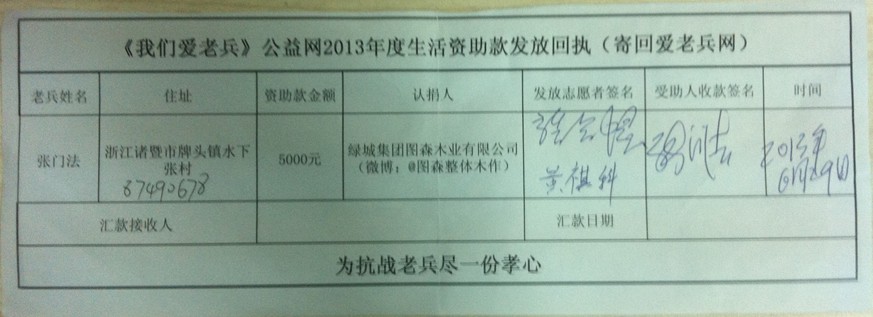 《我们爱老兵》公益网2013年度生活资助款发放回执（寄回爱老兵网）
老兵姓名 住址 资助款金额 认捐人 发放志愿者签名 受助人收款签名 时间
张门法 浙江诸暨市牌头镇水下 5000元 绿城集团图森木业有限公司
张村 （微博：@图森整体木作）
87490678 黄祖科 2013年
6月29日
汇款接收人 汇款日期
为抗战老兵尽一份孝心